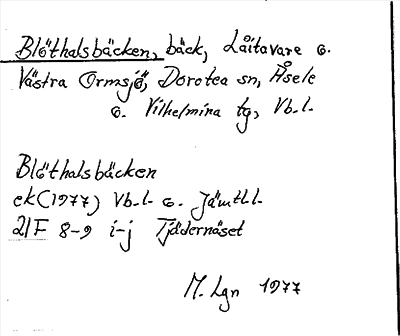 Blöthalsbäcken, bäck, Låitavare o.
Västra Ormsjö, Dorotea sn, Åsele
o. Vilhelmina tg, Vb.l.
Blöthalsbäcken
ek (1977) Vb.l. o. Jämtl.l.
21F 8-9 i-j Tjädernäset
M. Lgn 1977